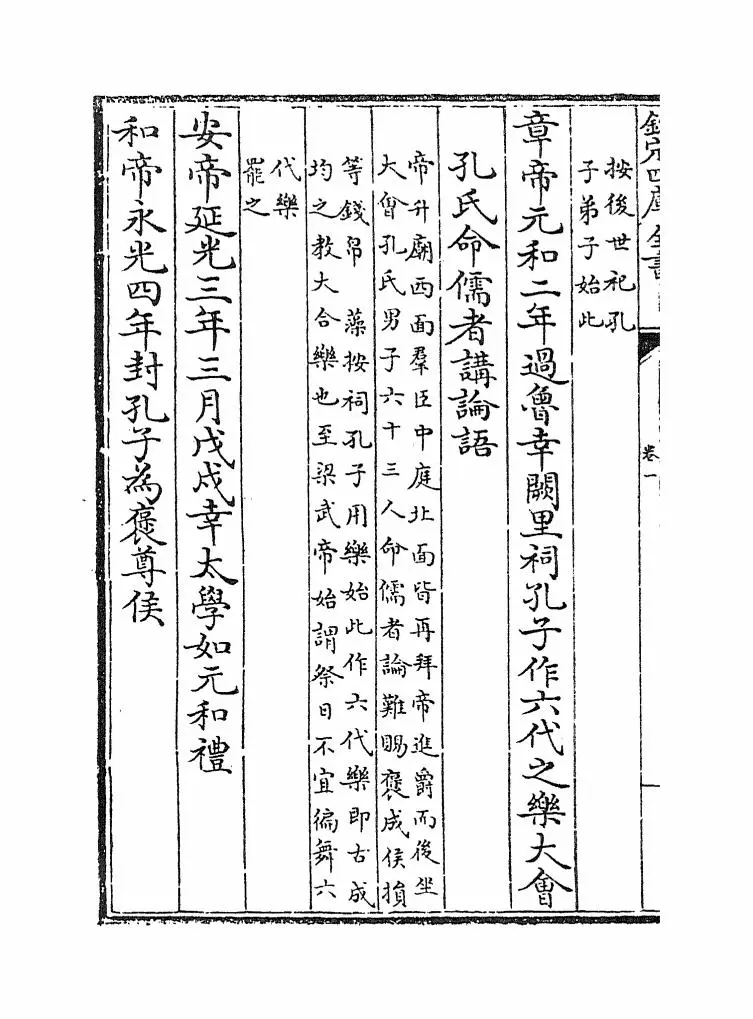 欽定四庫全書
卷一
按後世祀孔
子弟子始此
章帝元和二年過魯幸闕里祠孔子作六代之樂大會
孔氏命儒者講論語
帝升廟西面羣臣中庭北面皆再拜帝進爵而後坐
大會孔氏男子六十三人命儒者論難賜襃成侯損
等錢帛 藻按祠孔子用樂始此作六代樂即古成
均之教大合樂也至梁武帝始謂祭日不宜徧舞六
代樂
罷之
安帝延光三年三月戊戌幸太學如元和禮
和帝永光四年封孔子為襃尊侯